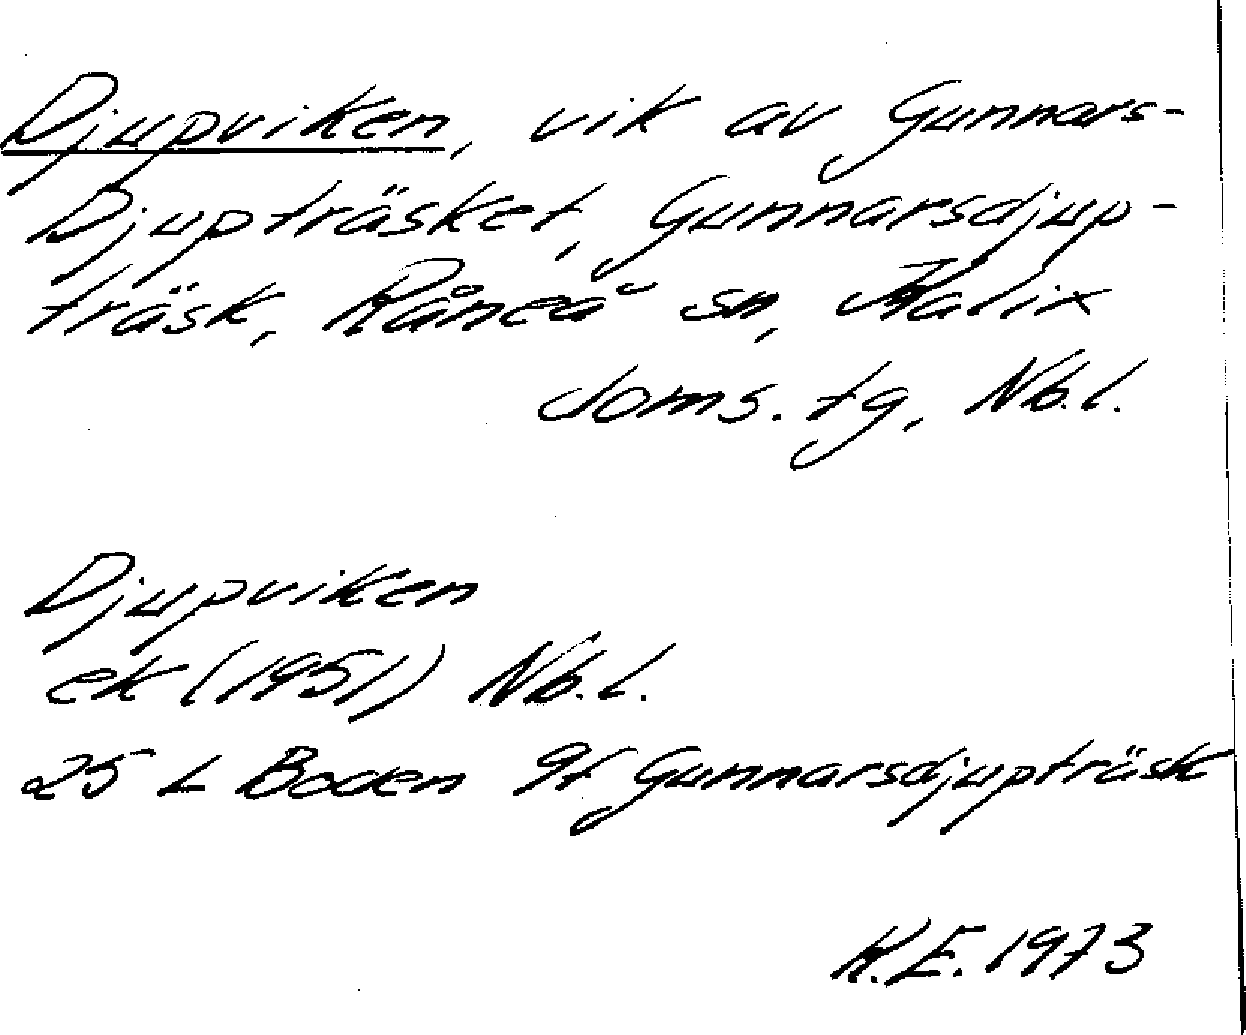 Djupviken, vik av Gunnars-
Djupträsket, Gunnarsdjup-
träsk, Råneå sn, Kalix
doms. tg, Nb.l.
Djupviken
ek (1951) Nb.l.
25 L Boden 9f Gunnarsdjupträsk
K.E. 1973